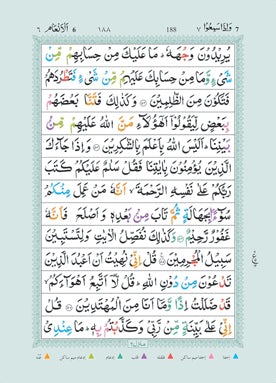 ٧ وَاِذَا سَمِعُوْا ٧ 188 ١٨٨ اَلْاَنْعَام ٦ 6
يُرِيْدُوْنَ وَجْهَهٗ ؕ مَا عَلَيْكَ مِنْ حِسَابِهِمْ مِّنْ
شَىْءٍ وَّمَا مِنْ حِسَابِكَ عَلَيْهِمْ مِّنْ شَىْءٍ فَتَطْرُدَهُمْ
فَتَكُوْنَ مِنَ الظّٰلِمِيْنَ ۞ وَكَذٰلِكَ فَتَنَّا بَعْضَهُمْ
بِبَعْضٍ لِّيَقُوْلُوْۤا اَهٰٓؤُلَآءِ مَنَّ اللّٰهُ عَلَيْهِمْ مِّنْۢ
بَيْنِنَا ؕ اَلَيْسَ اللّٰهُ بِاَعْلَمَ بِالشّٰكِرِيْنَ ۞ وَاِذَا جَآءَكَ
الَّذِيْنَ يُؤْمِنُوْنَ بِاٰيٰتِنَا فَقُلْ سَلٰمٌ عَلَيْكُمْ كَتَبَ
رَبُّكُمْ عَلٰى نَفْسِهِ الرَّحْمَةَ ۙ اَنَّهٗ مَنْ عَمِلَ مِنْكُمْ
سُوْٓءًۢا بِجَهَالَةٍ ثُمَّ تَابَ مِنْۢ بَعْدِهٖ وَاَصْلَحَ ۙ فَاَنَّهٗ
غَفُوْرٌ رَّحِيْمٌ ۞ وَكَذٰلِكَ نُفَصِّلُ الْاٰيٰتِ وَلِتَسْتَبِيْنَ
سَبِيْلُ الْمُجْرِمِيْنَ ۞ قُلْ اِنِّىْ نُهِيْتُ اَنْ اَعْبُدَ الَّذِيْنَ
تَدْعُوْنَ مِنْ دُوْنِ اللّٰهِ ؕ قُلْ لَّاۤ اَتَّبِعُ اَهْوَآءَكُمْ ۙ
قَدْ ضَلَلْتُ اِذًا وَّمَاۤ اَنَا مِنَ الْمُهْتَدِيْنَ ۞ قُلْ
اِنِّىْ عَلٰى بَيِّنَةٍ مِّنْ رَّبِّىْ وَكَذَّبْتُمْ بِهٖ ؕ مَا عِنْدِىْ